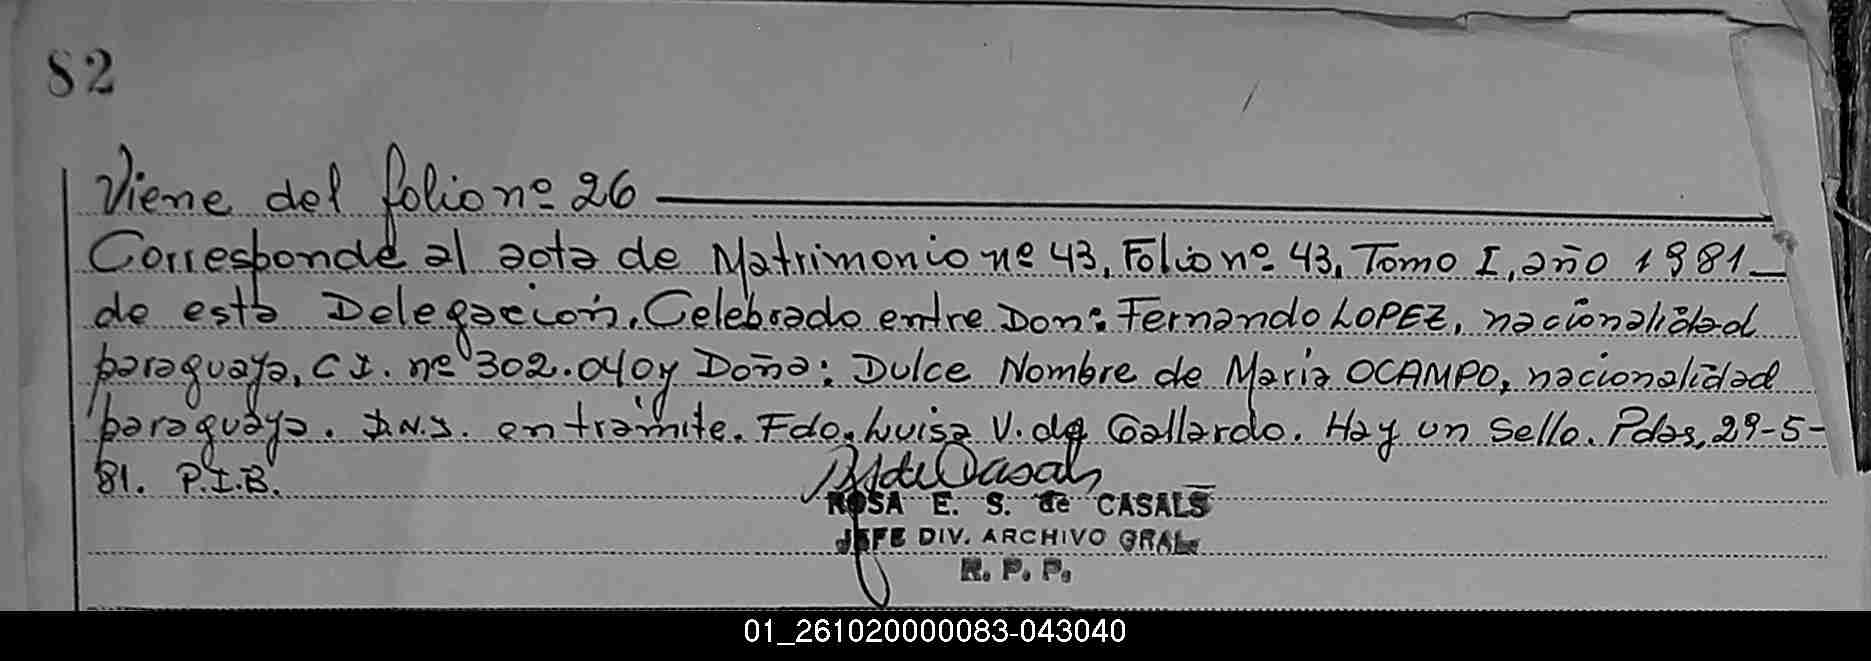 82
Viene del folio nº 26
Corresponde al acta de Matrimonio nº 43, Folio nº 43, Tomo I, año 1981
de esta Delegación. Celebrado entre Don: Fernando LOPEZ, nacionalidad
paraguaya, C I. nº 302.040 y Doña: Dulce Nombre de Maria OCAMPO, nacionalidad
paraguaya. D.N.I. en trámite. Fdo. Luisa V. de Gallardo. Hay un sello. Pdas, 29-5-
81. P.I.B.
ROSA E. S. de CASALS
JEFE DIV. ARCHIVO GRAL.
R. P. P.
01_261020000083-043040